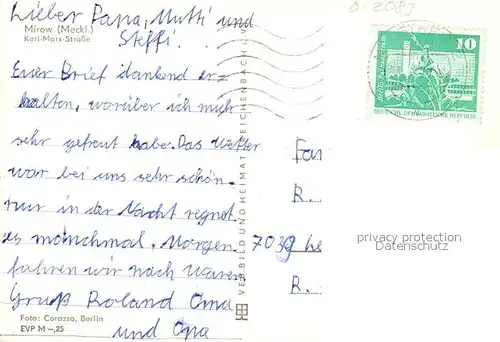 Lieber Papa, Mutti und
Steffi.
Mirow (Meckl.)
Karl-Marx-Straße
Euer Brief dankend er-
halten, worüber ich mich
sehr gefreut habe. Das Wetter
war bei uns sehr schön
nur in der Nacht regnet
es mönchmal. Morgen
fahren wir nach Waren
Gruß Roland Oma
und Opa
Foto: Corazza, Berlin
EVP M –,25
VERLAG BILD UND HEIMAT REICHENBACH I. V.
0-2083
10
DEUTSCHE DEMOKRATISCHE REPUBLIK
Fam
R.
7039 Le
R.
privacy protection
Datenschutz